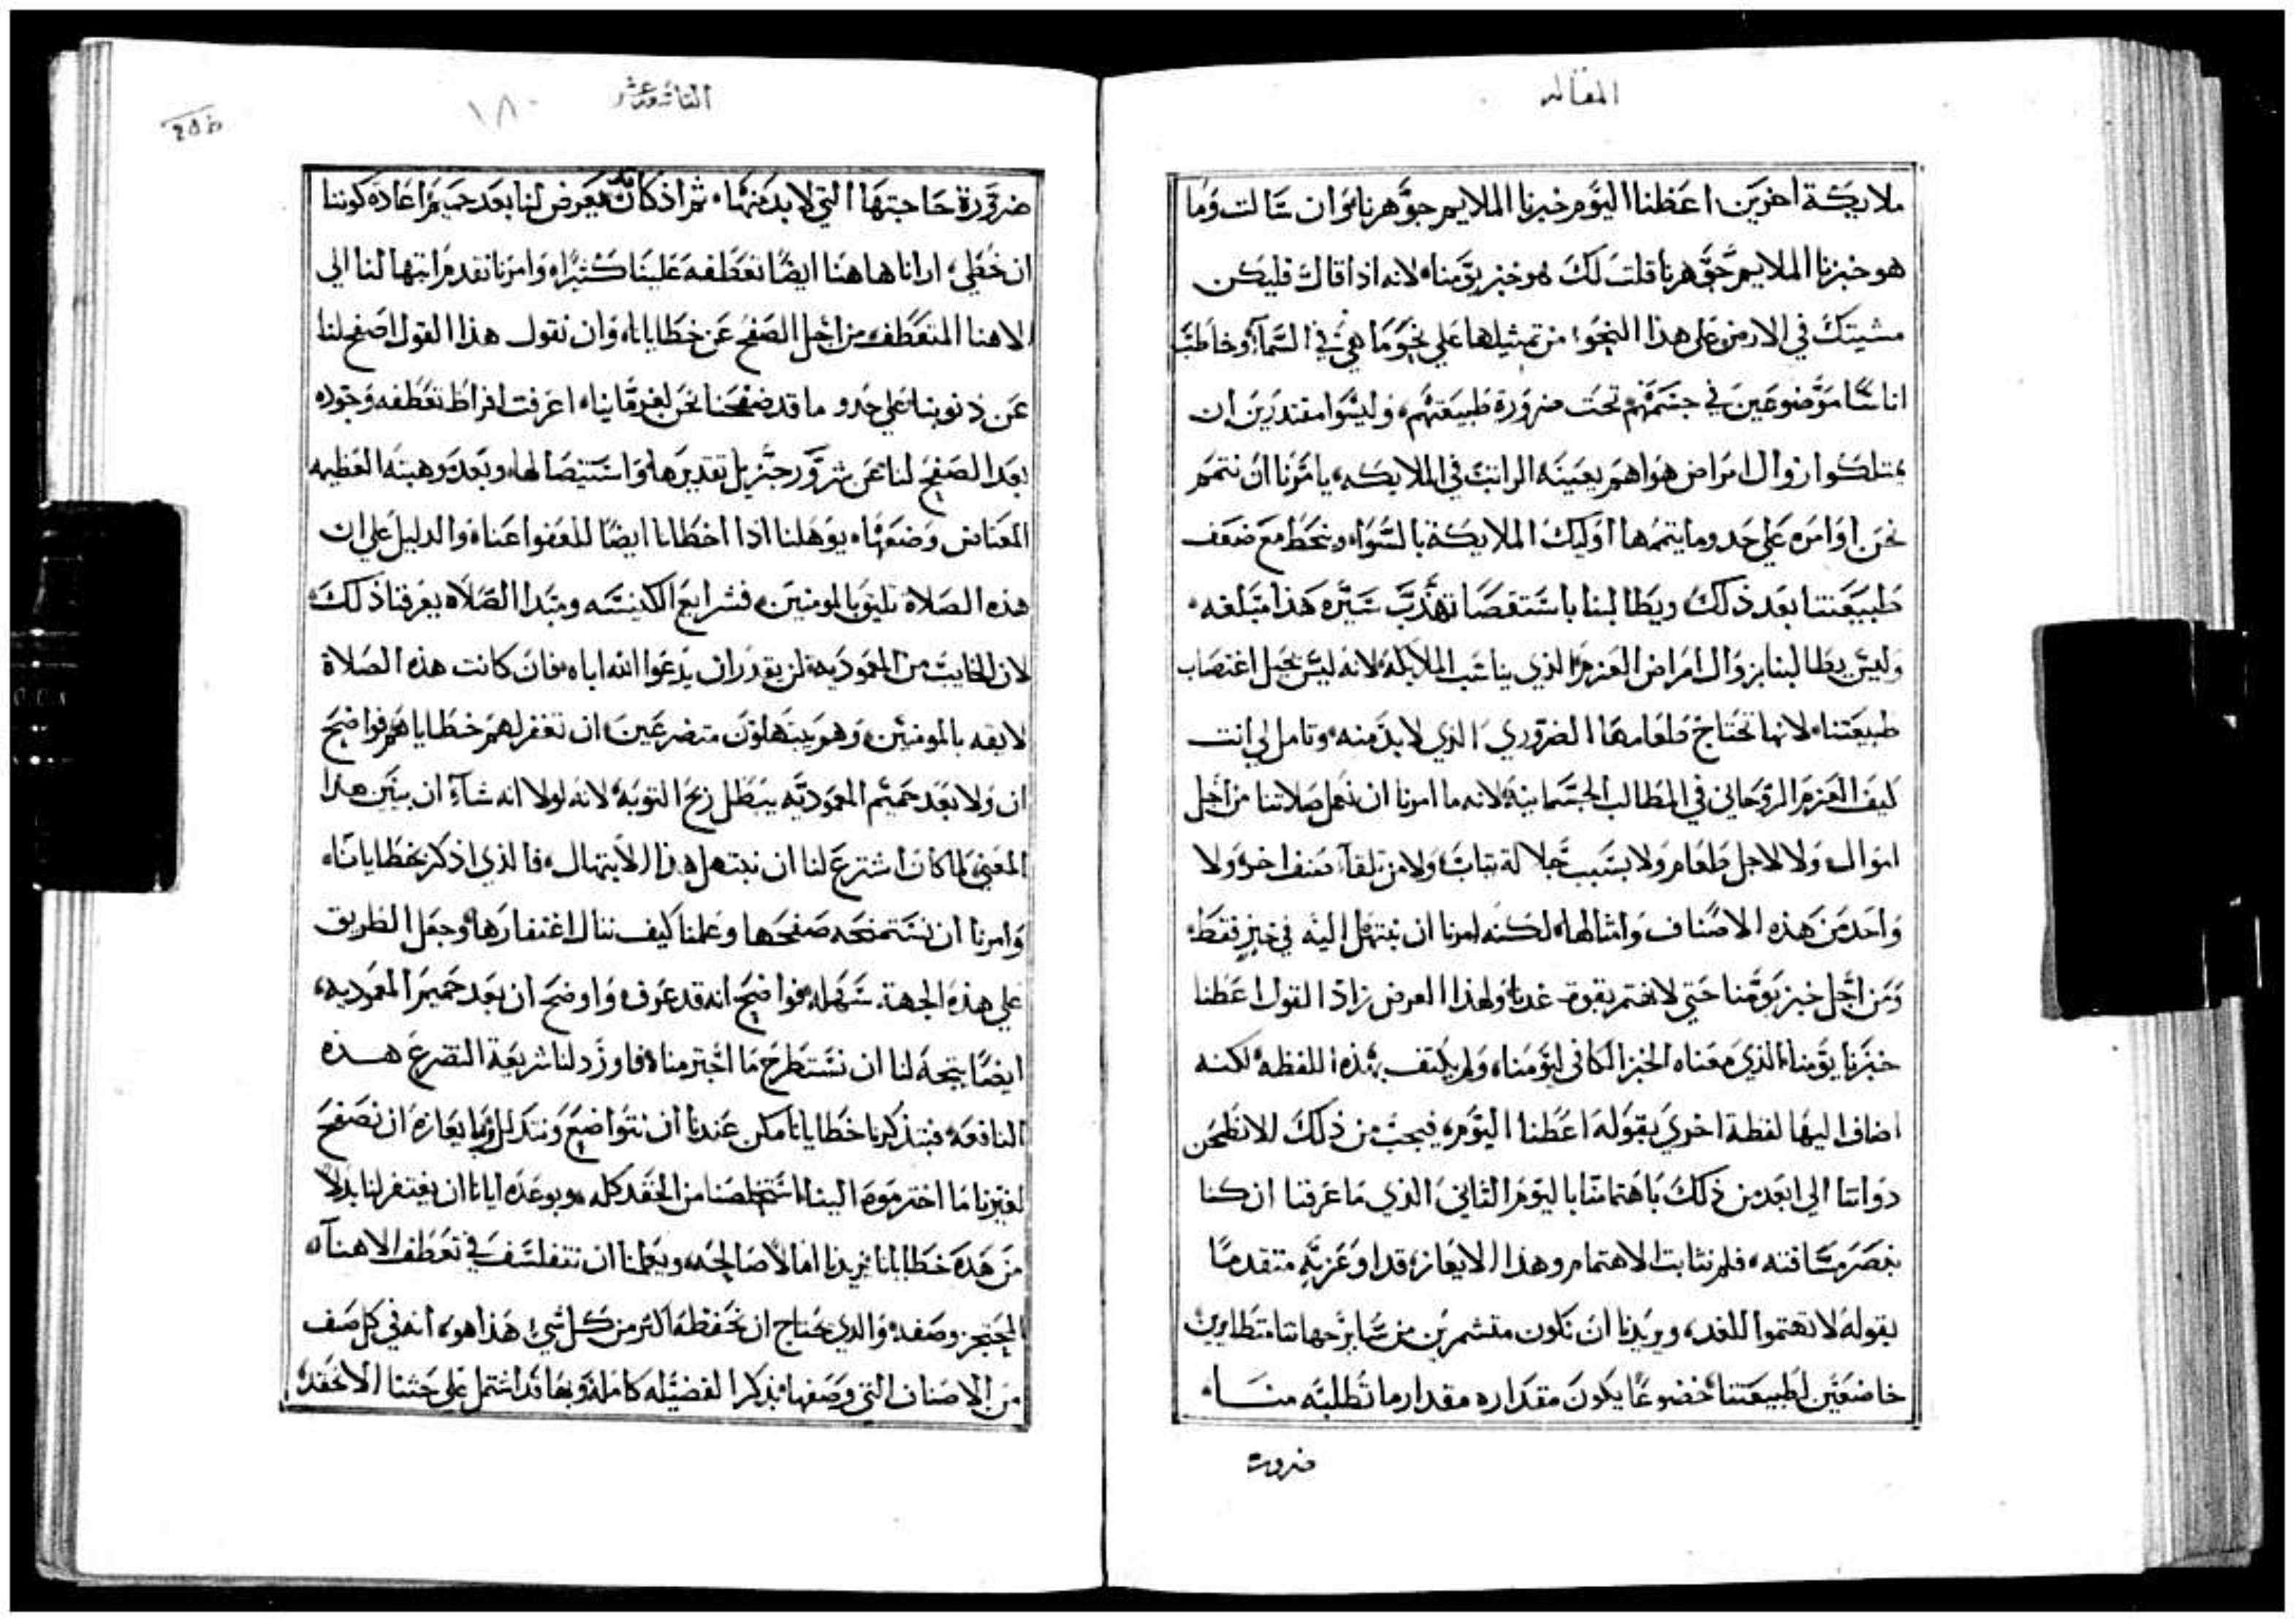 المقاله
ملايكة اخرين اعطنا اليوم خبزنا الملايم جوهرنا وان سالت وما
هو خبزنا الملايم جوهرنا قلت لك هو خبز يومنا لانه اذا قال فليكن
مشيتك في الارض علي هذا النحو من تمثيلها علي نحو ما هي في السماء وخاطب
اناسًا موضوعين في جسمهم تحت ضرورة طبيعتهم وليسوا مقتدرين ان
يمتلكوا زوال امراض هواهم بعينه الراتب في الملايكه يامرنا ان نتمم
نحن اوامره علي حدو ما يتممها اوليك الملايكة بالسوا وينحط مع ضعف
طبيعتنا بعد ذلك ويطالبنا باستقصا تهذب سيره هذا مبلغه
وليس يطالبنا بزوال امراض العزم الذي يناسب الملايكه لانه ليس يحيل اغتصاب
طبيعتنا لانها تحتاج طعامها الضروري الذي لا بد منه وتامل لي انت
كيف العزم الروحاني في المطالب الجسمانيه لانه ما امرنا ان نعمل صلاتنا من اجل
اموال ولا لاجل طعام ولا بسبب جلالة ثياب ولا من تلقآ صنف اخر ولا
واحد من هذه الاصناف وامثالها لكنه امرنا ان نبتهل اليه في خبز فقط
ومن اجل خبز يومنا حتي لا نهتم بقوت غدنا ولهذا الغرض زاد القول اعطنا
خبزنا يومنا الذي معناه الخبز الكافي ليومنا ولم يكتف بهذه اللفظه لكنه
اضاف اليها لفظة اخري بقوله اعطنا اليوم فيجب من ذلك الا نطحن
دواتنا الي ابعد من ذلك باهتمامنا باليوم الثاني الذي ما عرفنا ان كنا
نبصر مسافته فلم نثابت الاهتمام وهذا الايعاز قد اوعز به متقدمًا
بقوله لا تهتموا للغد ويريدنا ان نكون متشمرين من ساير جهاتنا متطايرين
خاضعين لطبيعتنا خضوعًا يكون مقداره مقدار ما تطلبه منا
ضروت
الثامنه عشر
١٨٠
ضرورة حاجتها التي لا بد منها ثم اذ كان قد يعرض لنا بعد حميم اعادة كوننا
ان نخطي ارانا هاهنا ايضًا تعطفه علينا كثيرًا وامرنا نقدم اتيها لنا الي
الاهنا المتعطف من اجل الصفح عن خطايانا وان نقول هذا القول اصفح لنا
عن ذنوبنا علي حدو ما قد صفحنا نحن لغرماينا اعرفت افراط تعطفه وجوده
بعد الصفح لنا عن شرور جزيل تقديرها واستيصالها وبعد موهبته العظيمه
المعتاص وصفها يوهلنا اذا اخطانا ايضًا للعفوا عنا والدليل علي ان
هذه الصلاة تليق بالمومنين فشرايع الكنيسه ومبدا الصلاه يعرفنا ذلك
لان الخايب من المعموديه لن يقدر ان يدعوا الله اباه فان كانت هذه الصلاة
لايقه بالمومنين وهم يبتهلون متضرعين ان تغفر لهم خطاياهم فواضح
ان ولا بعد حميم المعموديه يبطل ربح التوبه لانه لولا انه شآء ان يبين هذا
المعني لما كان اشترع لنا ان نبتهل هذا الابتهال فالذي اذكر بخطايانا
وامرنا ان نستمنحه صفحها وعلمنا كيف ننال اغتفارها وجعل الطريق
علي هذه الجهة سهله فواضح انه قد عرف واوضح ان بعد حميم المعموديه
ايضًا يتجه لنا ان نستطرح ما اجترمناه فاورد لنا شريعة التضرع هذه
النافعه فبتذكيرنا خطايانا مكن عندنا ان نتواضع ونتذلل وبايعازه ان نصفح
لغيرنا ما اجترموه الينا استخلصنا من الحقد كله وبوعده ايانا ان يغتفر لنا بدلًا
من هذه خطايانا يزيدنا امالًا صالحه ويعلمنا ان نتفلسف في تعطف الاهنا
المحتجز وصفه والذي يحتاج ان نحفظه اكثر من كل شي هذا هو انه في كل صنف
من الاصناف التي وصفها بذكر الفضيله كامله وبها قد اشتمل علي حثنا الا نحقد